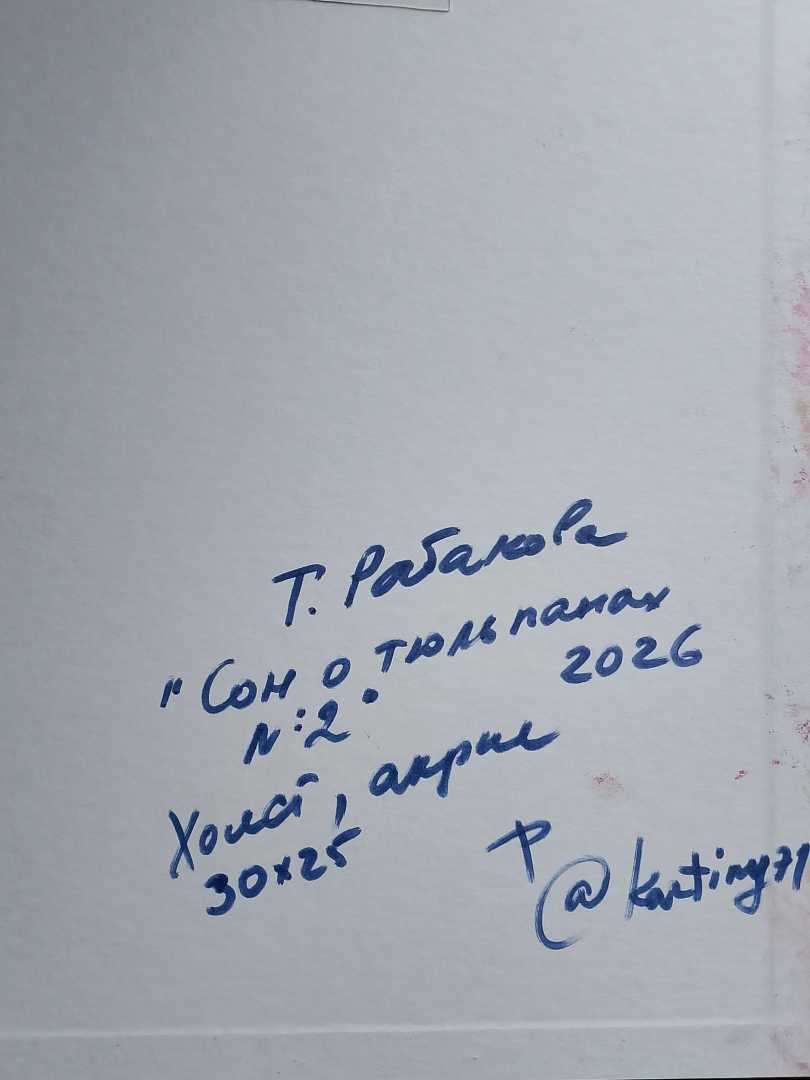 Т. Рабакова
"Сон о тюльпанах
N:2" 2026
Холст, акрил
30х25
@kartiny71